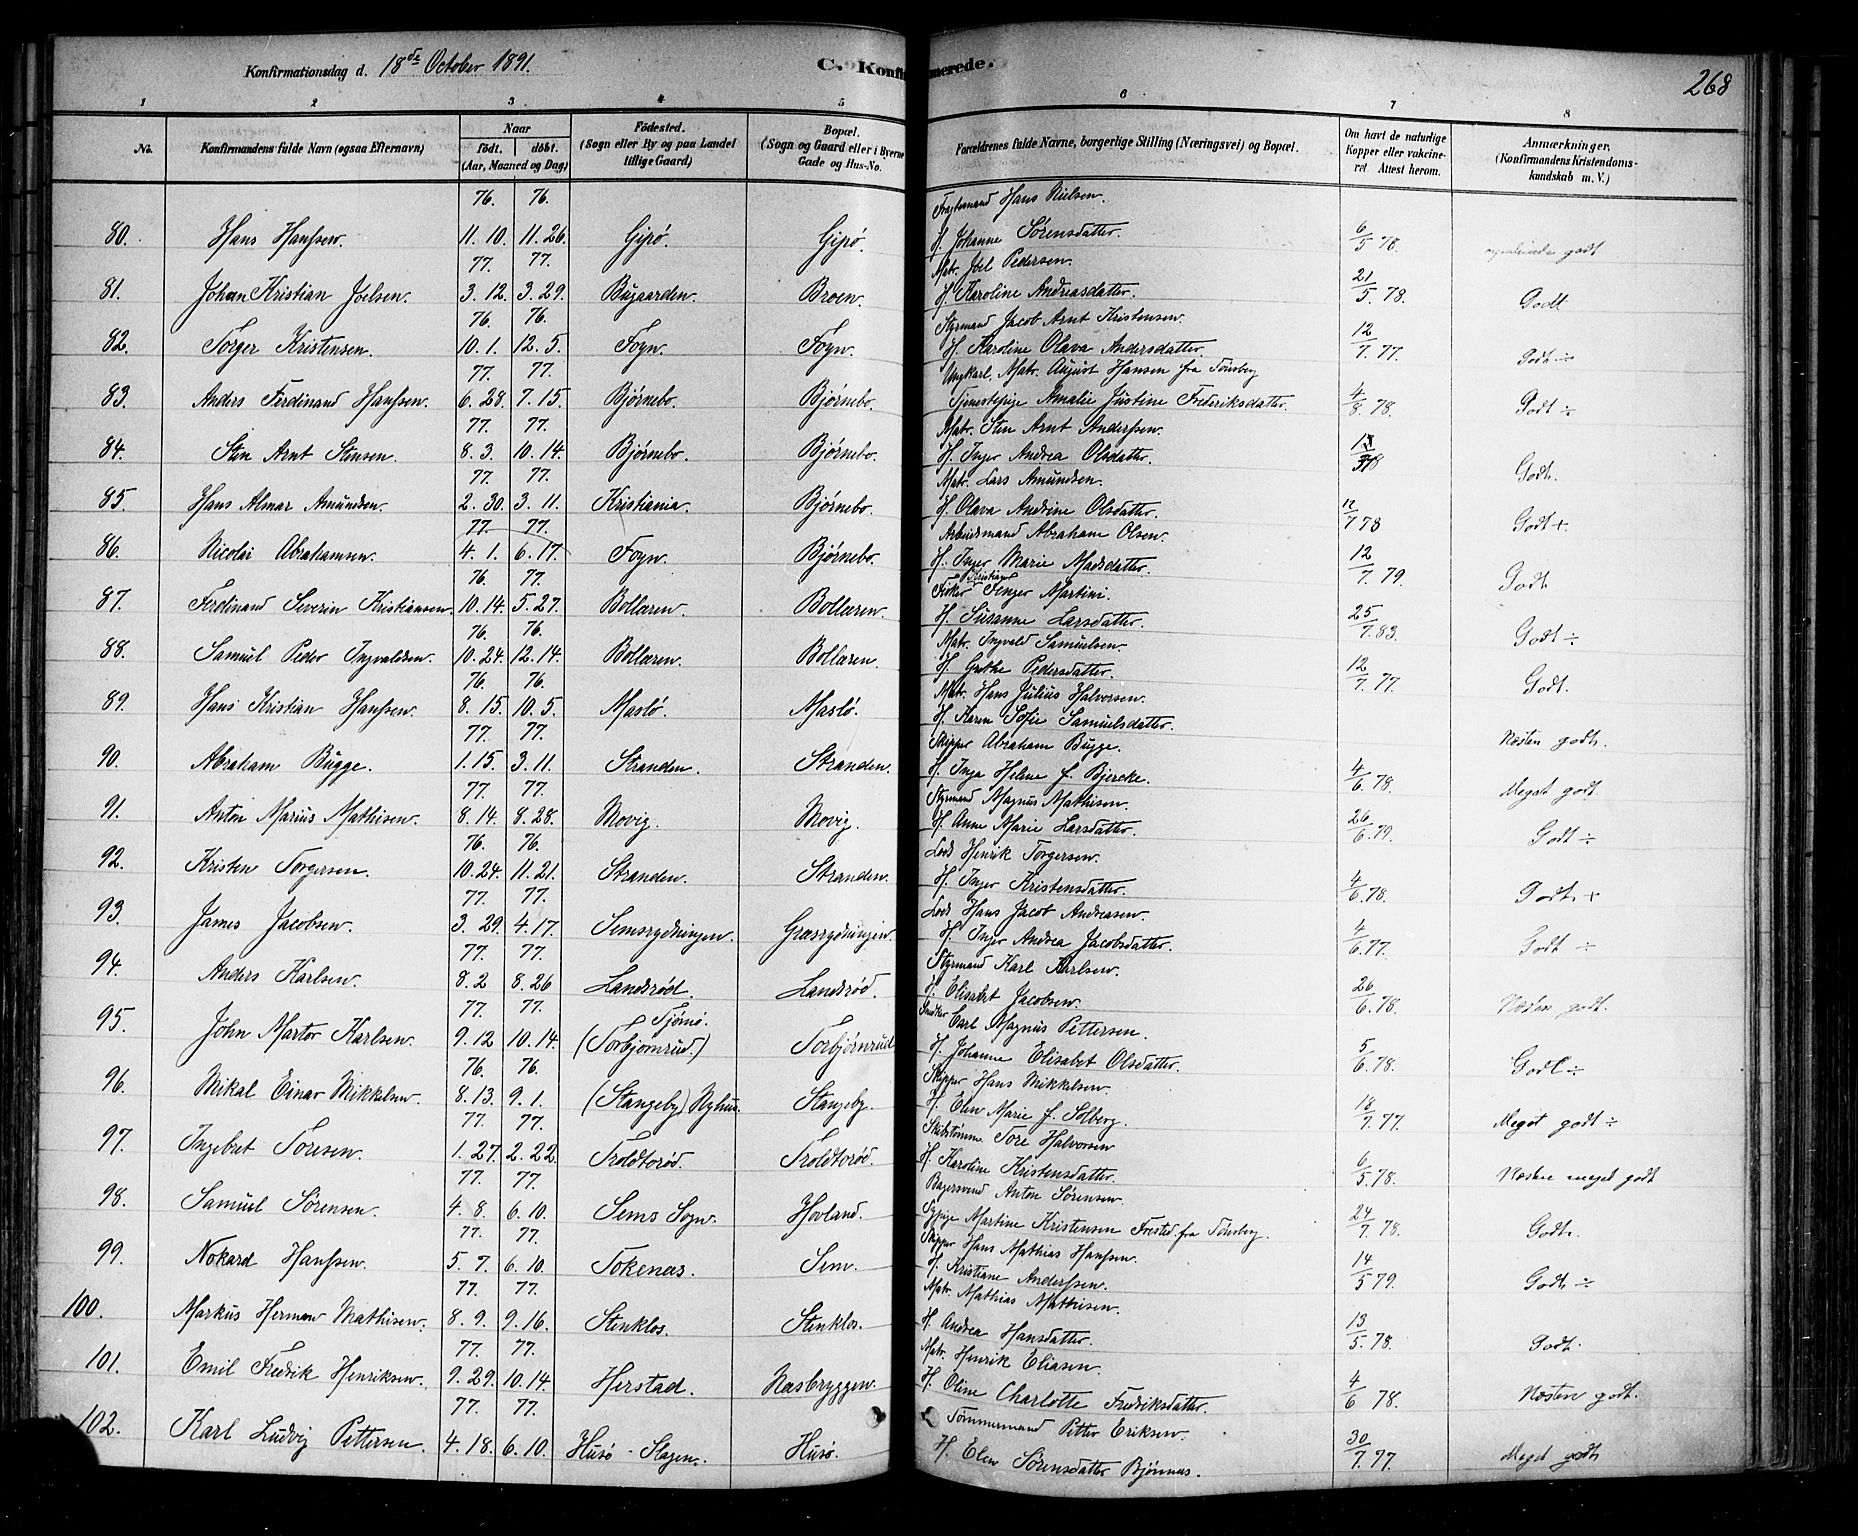 Konfirmationsdag d. 18de October 1891.
C. Konfirmerede.
268
1 2 3 4 5 6 7 8
No. | Konfirmandens fulde Navn (ogsaa Efternavn) | Naar født. døbt. (Aar, Maaned og Dag) | Fødested. (Sogn eller By og paa Landet tillige Gaard) | Bopæl. (Sogn og Gaard eller i Byerne Gade og Hus-No. | Forældrenes fulde Navne, borgerlige Stilling (Næringsvei) og Bopæl. | Om havt de naturlige Kopper eller vakcineret Attest herom. | Anmærkninger. (Konfirmandens Kristendomskundskab m. V.)
76. 76. Fragtemand Hans Nielsen.
80. Hans Hanssen. 11. 10. 11. 26. Gipø. Gipø. H. Johanne Sørensdatter. 6/5 78. godt
77. 77. Matr. Joel Pedersen.
81. Johan Kristian Joelsen. 3. 12. 3. 29. Bugaarden. Broen. H. Karoline Andreasdatter. 21/5 78. Godt
76. 76. Styrmand Jacob Arnt Kristensen.
82. Torger Kristensen. 10. 1. 12. 5. Foyn. Foyn. H. Karoline Olava Andersdatter. 12/7. 77. Godt ÷
77. 77. Ungkarl, Matr. August Hansen fra Tönsberg
83. Anders Ferdinand Hanssen. 6. 28. 7. 15. Bjørnebo. Bjørnebo. Tjenestepige Amalie Justine Frederiksdatter. 4/8. 78. Godt ÷
77. 77. Matr. Sten Arnt Anderssen.
84. Sten Arnt Stensen. 8. 3. 10. 14. Bjørnebo. Bjørnebo. H. Inger Andrea Olsdatter. Godt.
77. 77. Matr. Lars Amundsen.
85. Hans Almar Amundsen. 2. 30. 3. 11. Kristiania. Bjørnebo. H. Olava Andrine Olsdatter. 12/7 78 Godt +
77. 77. Arbeidsmand Abraham Olsen.
86. Nicolai Abrahamsen. 4. 1. 6. 17. Foyn. Bjørnebo. H. Inger Marie Madsdatter. 12/7. 79. Godt.
76. 77. Fisker Kristian Fenger Martini.
87. Ferdinand Severin Kristiansen. 10. 14. 5. 27. Bollæren. Bollæren. H. Susanne Larsdatter. 25/7. 83. Godt ÷
76. 76. Matr. Ingvald Samuelsen.
88. Samuel Peder Ingvaldsen. 10. 24. 12. 14. Bollæren. Bollæren. H. Grethe Pedersdatter. 12/7. 77. Godt.
76. 76. Matr. Hans Julius Halvorsen.
89. Hans Kristian Hanssen. 8. 15. 10. 5. Maslø. Maslø. H. Karen Sofie Samuelsdatter. Næsten godt.
77. 77. Skipper Abraham Bugge.
90. Abraham Bugge. 1. 15. 3. 11. Stranden. Stranden. H. Inga Helene f. Bjercke. 4/6. 78. Meget godt.
77. 77. Styrmand Magnus Mathisen.
91. Anton Marius Mathisen. 8. 14. 8. 28. Movig. Movig. H. Anne Marie Larsdatter. 26/6. 79. Godt ÷
76. 76. Lods Henrik Torgersen.
92. Kristen Torgersen. 10. 24. 11. 21. Stranden. Stranden. H. Inger Kristensdatter. 4/6. 78. Godt. +
77. 77. Lods Hans Jacob Andreasen.
93. James Jacobsen. 3. 29. 4. 17. Semsrydningen. Græsrydningen H. Inger Andrea Jacobsdatter. 4/6. 77. Godt ÷
77. 77. Styrmand Karl Karlsen.
94. Anders Karlsen. 8. 2 8. 26 Landsrød. Landsrød. H. Elisabet Jacobsen. 26/6. 78. Næsten godt.
77. 77. Tjømø. Snedker Carl Magnus Pettersen.
95. John Martor Karlsen. 9. 12 10. 14. (Torbjørnrud.) Torbjørnrud H. Johanne Elisabet Olsdatter. 5/6. 78. Godt ÷
76. 76. Skipper Hans Mikkelsen.
96. Mikal Einar Mikkelsen. 8. 13. 9. 1. (Stangeby) Nyhus. Stangeby. H. Elen Marie f. Solberg. 18/7. 77 Meget godt ÷
77. 77. Skibstømme Tore Halvorsen
97. Ingebret Toresen. 1. 27. 2. 22. Troldtorød. Troldtorød. H. Karoline Kristensdatter. 6/5. 78. Næsten meget godt
77. 77. Bagersvend Anton Sørensen
98. Samuel Sørensen. 4. 8. 6. 10. Sems Sogn. Hovland. Martine Kristensen fra Tönsberg. 24/7. 78. Godt.
77. 77. Skipper Hans Mathias Hanssen.
99. Nokard Hanssen. 5. 7. 6. 10. Tokenæs. Sem. H. Kristiane Anderssen. 14/5 79. Godt ÷
77. 77. Matr. Mathias Mathisen.
100. Markus Herman Mathisen. 8. 9. 9. 16. Stenklos. Stenklos. H. Andrea Hansdatter. 13/5. 78. Godt.
77. 77. Matr. Henrik Eliasen.
101. Emil Fredrik Henriksen. 9. 29. 10. 14. Herstad. Næsbryggen. H. Oline Charlotte Fredriksdatter. 4/6 78. Næsten godt.
77. 77. Tömmermand Petter Eriksen.
102. Karl Ludvig Pettersen. 4. 18. 6. 10. Husø - Slagen. Husø. H. Elen Sørensdatter Bjønnæs. 30/7. 77. Meget godt